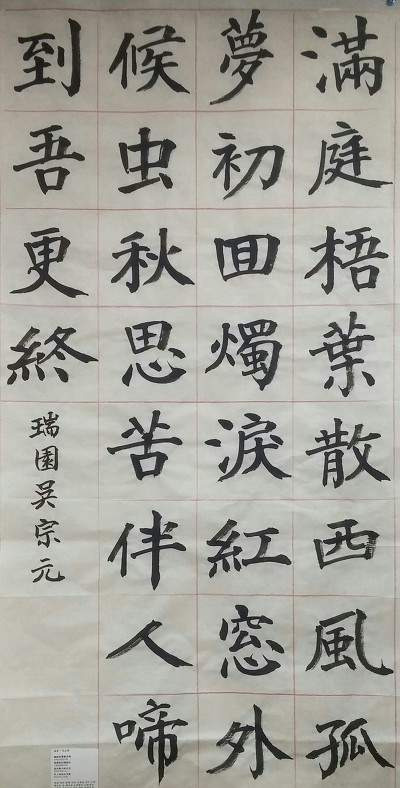 滿庭梧葉散西風孤
夢初回燭淚紅窓外
候虫秋思苦伴人啼
到吾更終
瑞園吳宗元